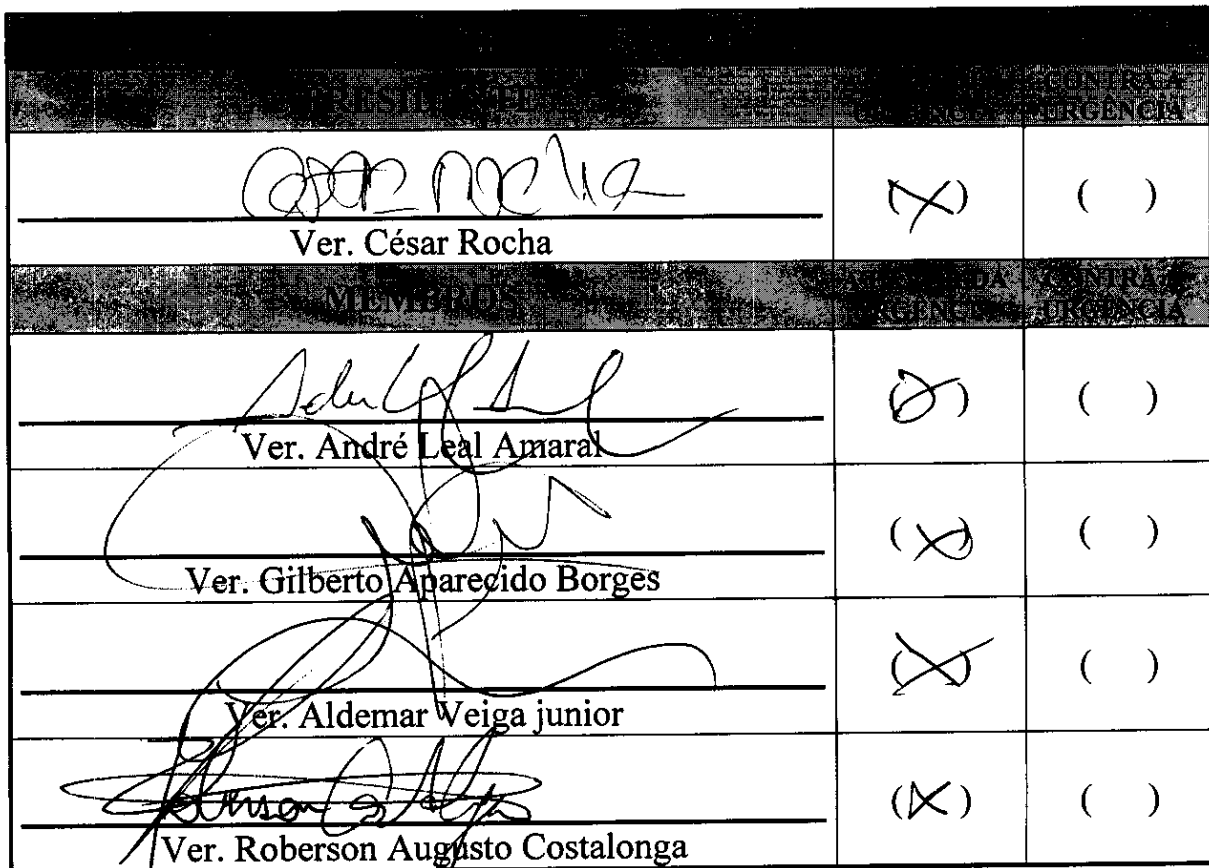 PRESIDENTE CONTRA A
URGÊNCIA
César Rocha (X) ( )
Ver. César Rocha
MEMBROS A FAVOR DA CONTRA A
URGÊNCIA URGÊNCIA
(X) ( )
Ver. André Leal Amaral
(X) ( )
Ver. Gilberto Aparecido Borges
(X) ( )
Ver. Aldemar Veiga junior
(X) ( )
Ver. Roberson Augusto Costalonga